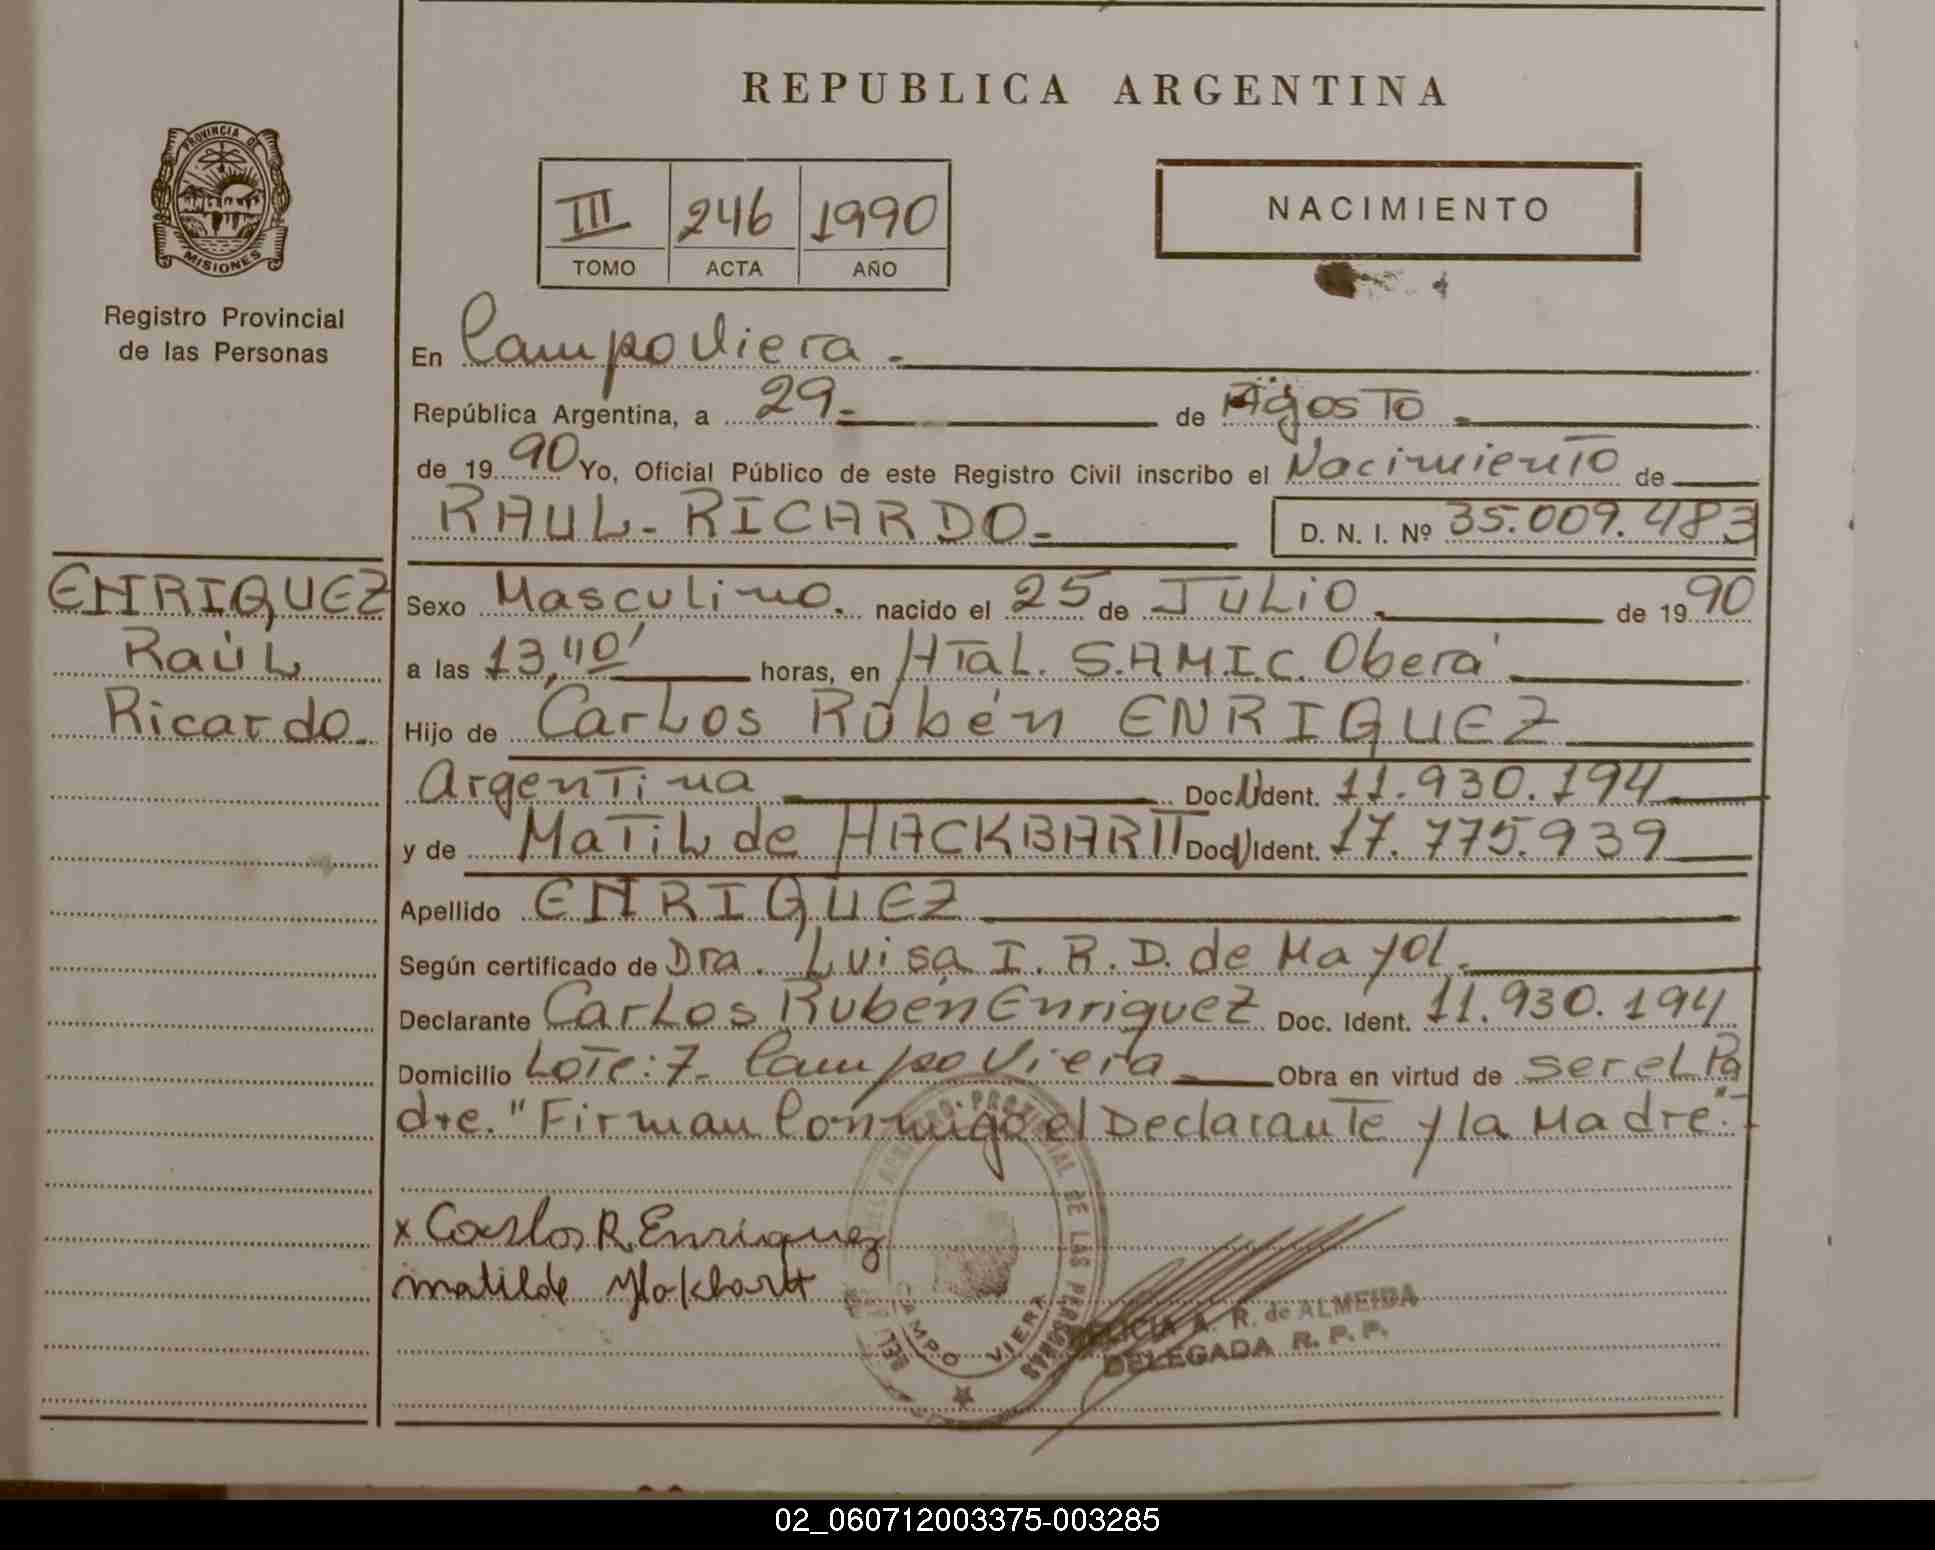 REPUBLICA ARGENTINA
PROVINCIA DE
MISIONES
Registro Provincial
de las Personas
III 246 1990
TOMO ACTA AÑO
NACIMIENTO
En Campo Viera.
República Argentina, a 29 de Agosto
de 1990 Yo, Oficial Público de este Registro Civil inscribo el Nacimiento de
RAUL-RICARDO D. N. I. Nº 35.009.483
ENRIQUEZ
Raúl
Ricardo.
Sexo Masculino. nacido el 25 de JULIO de 1990
a las 13,40' horas, en HTal. S.A.M.I.C. Oberá
Hijo de Carlos Rubén ENRIQUEZ
Argentina Doc. Ident. 11.930.194
y de Matilde HACKBARTT Doc. Ident. 17.775.939
Apellido ENRIQUEZ
Según certificado de Dra. Luisa I. R. D. de Mayol.
Declarante Carlos Rubén Enriquez Doc. Ident. 11.930.194
Domicilio Lote: 7- Campo Viera Obra en virtud de ser el Pa
dre. "Firman Conmigo el Declarante y la Madre".-
x Carlos R. Enriquez
Matilde
PROVINCIAL DE LAS PERSONAS
CAMPO VIERA
A. R. de ALMEIDA
DELEGADA R. P. P.
02_060712003375-003285